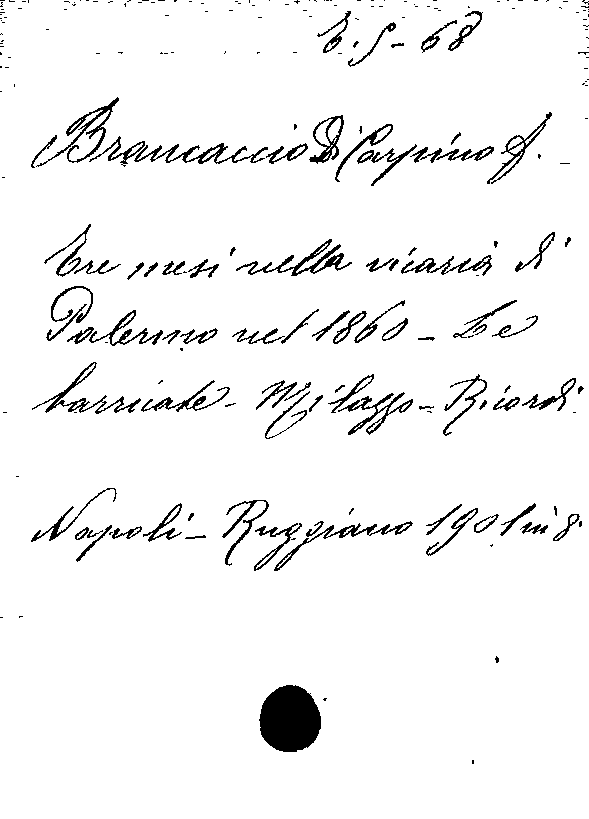 E. 5 - 68
Brancaccio Di Carpino F.
Tre mesi nella vicaria di
Palermo nel 1860 - Le
barricate - Milazzo - Ricordi
Napoli - Ruggiano 1901 in 8.